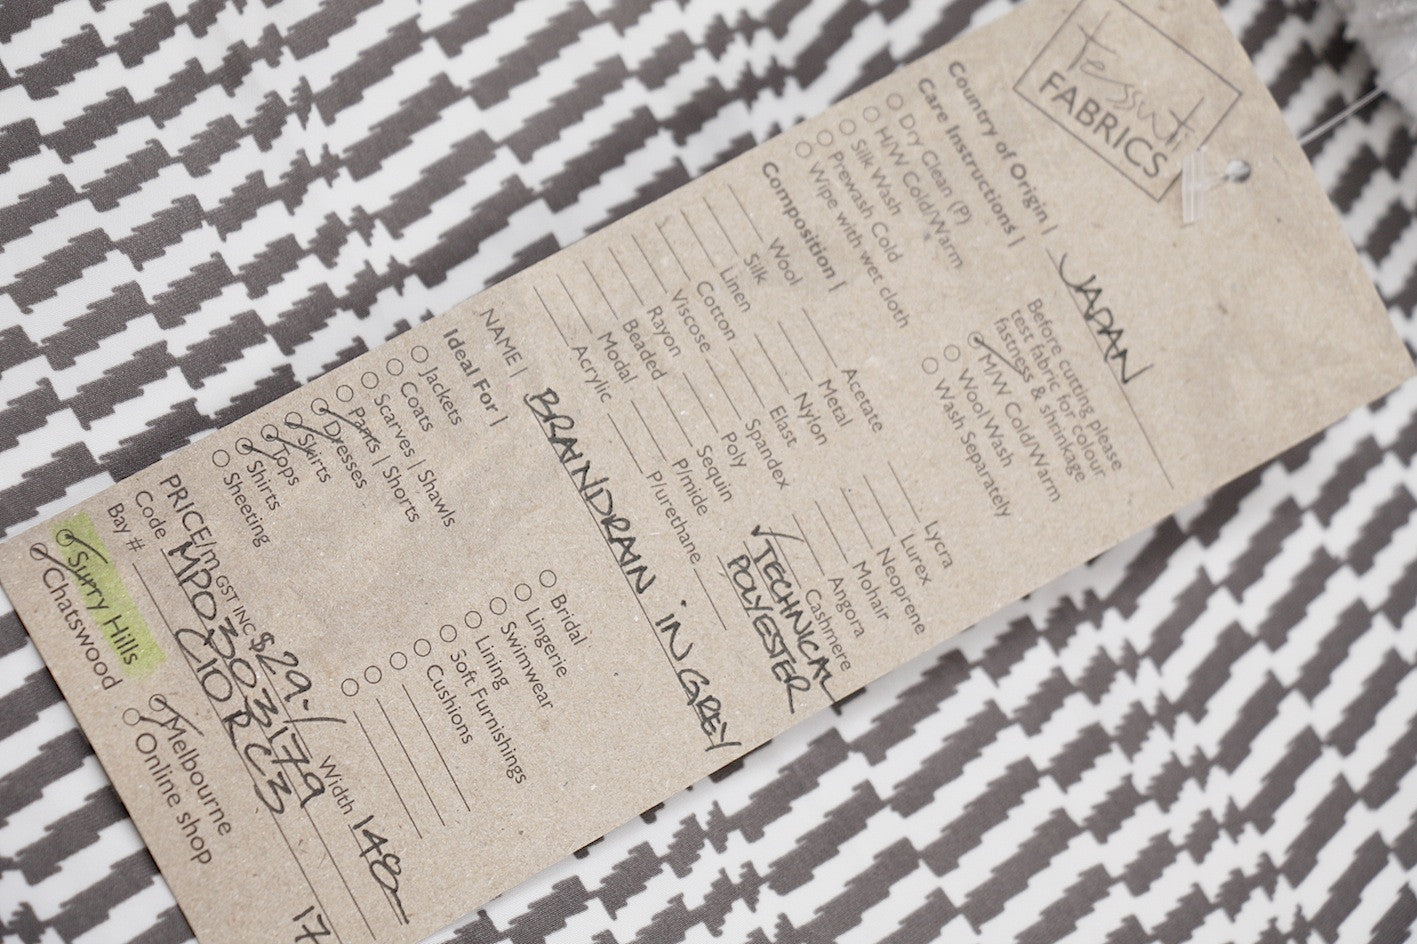 Tessuti
FABRICS
Country of Origin | JAPAN
Care Instructions |
Dry Clean (P)
H/W Cold/Warm
Silk Wash
Prewash Cold
Wipe with wet cloth
Before cutting please
test fabric for colour
fastness & shrinkage
M/W Cold/Warm
Wool Wash
Wash Separately
Composition |
Wool
Silk
Linen
Cotton
Viscose
Rayon
Beaded
Modal
Acrylic
Acetate
Metal
Nylon
Elast
Spandex
Poly
Sequin
P/mide
P/urethane
Lycra
Lurex
Neoprene
Mohair
Angora
Cashmere
TECHNICAL
POLYESTER
NAME | BRAINDRAIN IN GREY
Ideal For |
Jackets
Coats
Scarves | Shawls
Pants | Shorts
Dresses
Skirts
Tops
Shirts
Sheeting
Bridal
Lingerie
Swimwear
Lining
Soft Furnishings
Cushions
PRICE/m GST INC $29-/ Width 148
Code MP03033179
Bay # C10RC3
Surry Hills
Chatswood
Melbourne
Online shop
17